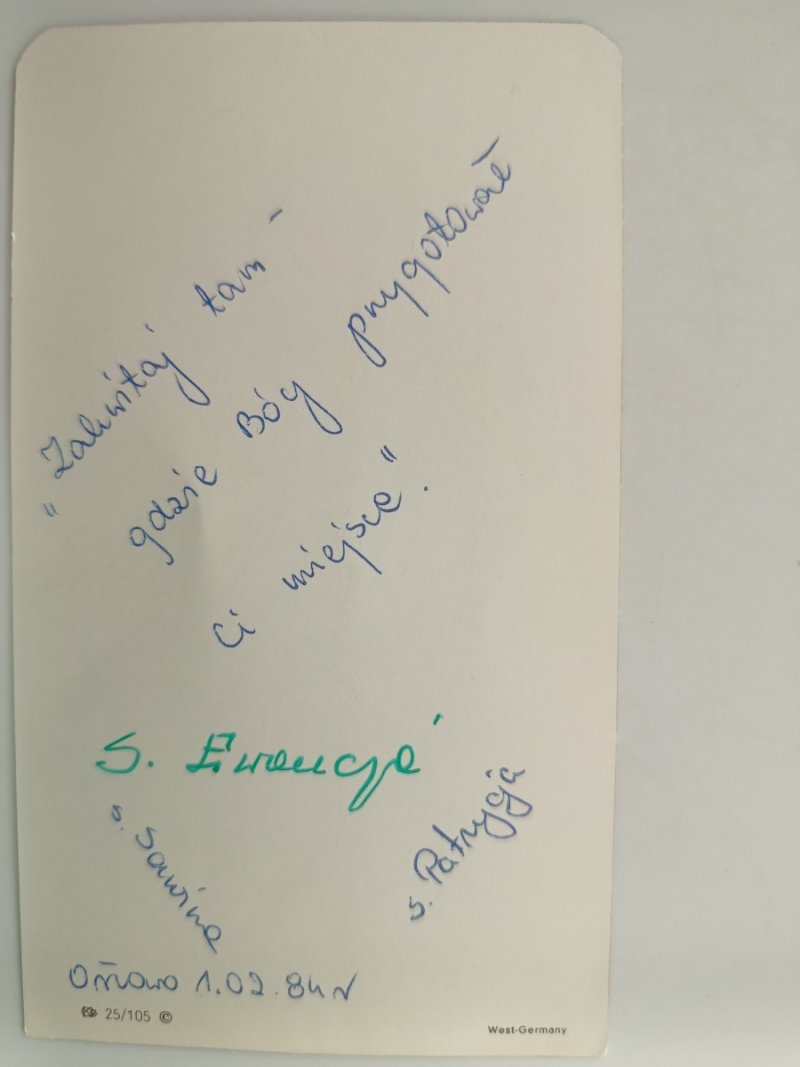 "Zakwitaj tam -
gdzie Bóg przygotował
Ci miejsce".
S. Ewencja
s. Sawina
s. Patrycja
1.02.84r
25/105 ©
West-Germany